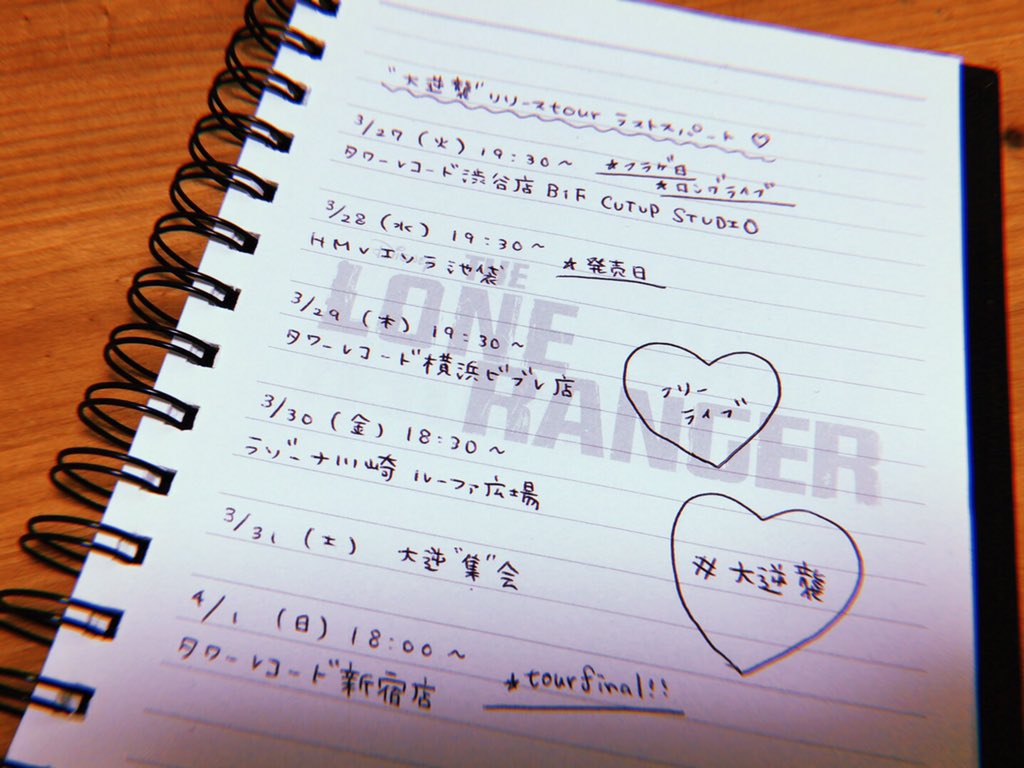 "大逆襲"リリースtour ラストスパート♡
3/27 (火) 19:30〜 *フラゲ日
*ロングライブ
タワーレコード渋谷店 B1F CUTUP STUDIO
3/28 (水) 19:30〜
HMVエソラ池袋 *発売日
3/29 (木) 19:30〜
タワーレコード横浜ビブレ店
フリー
ライブ
3/30 (金) 18:30〜
ラゾーナ川崎 ルーファ広場
3/31 (土) 大逆"集"会
#大逆襲
4/1 (日) 18:00〜
タワーレコード新宿店 *tourfinal!!
THE
LONE
RANGER